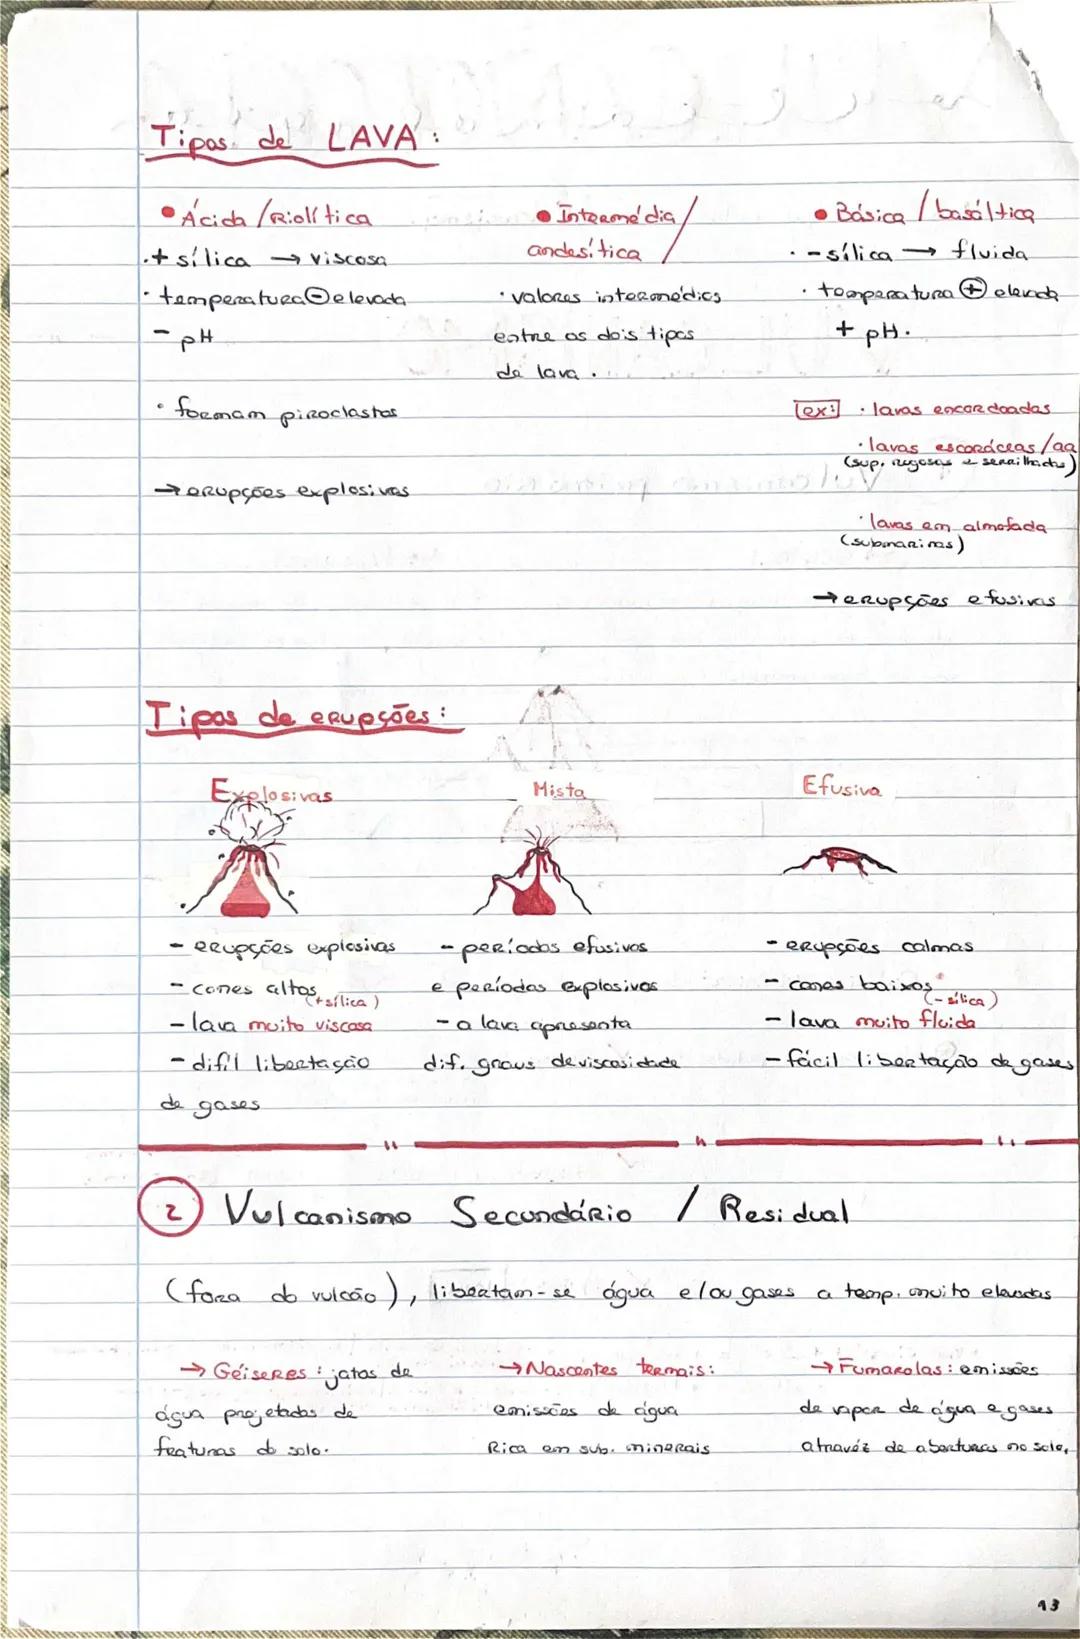 Tipos de LAVA:
• Ácida / Riolítica
.+ sílica → viscosa
· temperatura ⊖ elevada
- pH
· formam piroclastos
→ erupções explosivas
• Intermédia /
andesítica /
· valores intermédios
entre os dois tipos
de lava.
• Básica / basáltica
· - sílica → fluida
· temperatura ⊕ elevada
+ pH.
ex: · lavas encordoadas
· lavas escoráceas / aa
(sup. rugosas e serrilhadas)
· lavas em almofada
(submarinas)
→ erupções efusivas
Tipos de erupções:
Explosivas
- erupções explosivas
- cones altos
(+ sílica)
- lava muito viscosa
- difíl libertação
de gases
Mista
- períodos efusivos
e períodos explosivos
- a lava apresenta
dif. graus de viscosidade
Efusiva
- erupções calmas
- cones baixos
(- sílica)
- lava muito fluida
- fácil libertação de gases
2 Vulcanismo Secundário / Residual
(fora do vulcão), libertam-se água e/ou gases a temp. muito elevadas
→ Géiseres: jatos de
água projetados de
fraturas do solo.
→ Nascentes termais:
emissões de água
Rica em sub. minerais
→ Fumarolas: emissões
de vapor de água e gases
através de aberturas no solo.
13